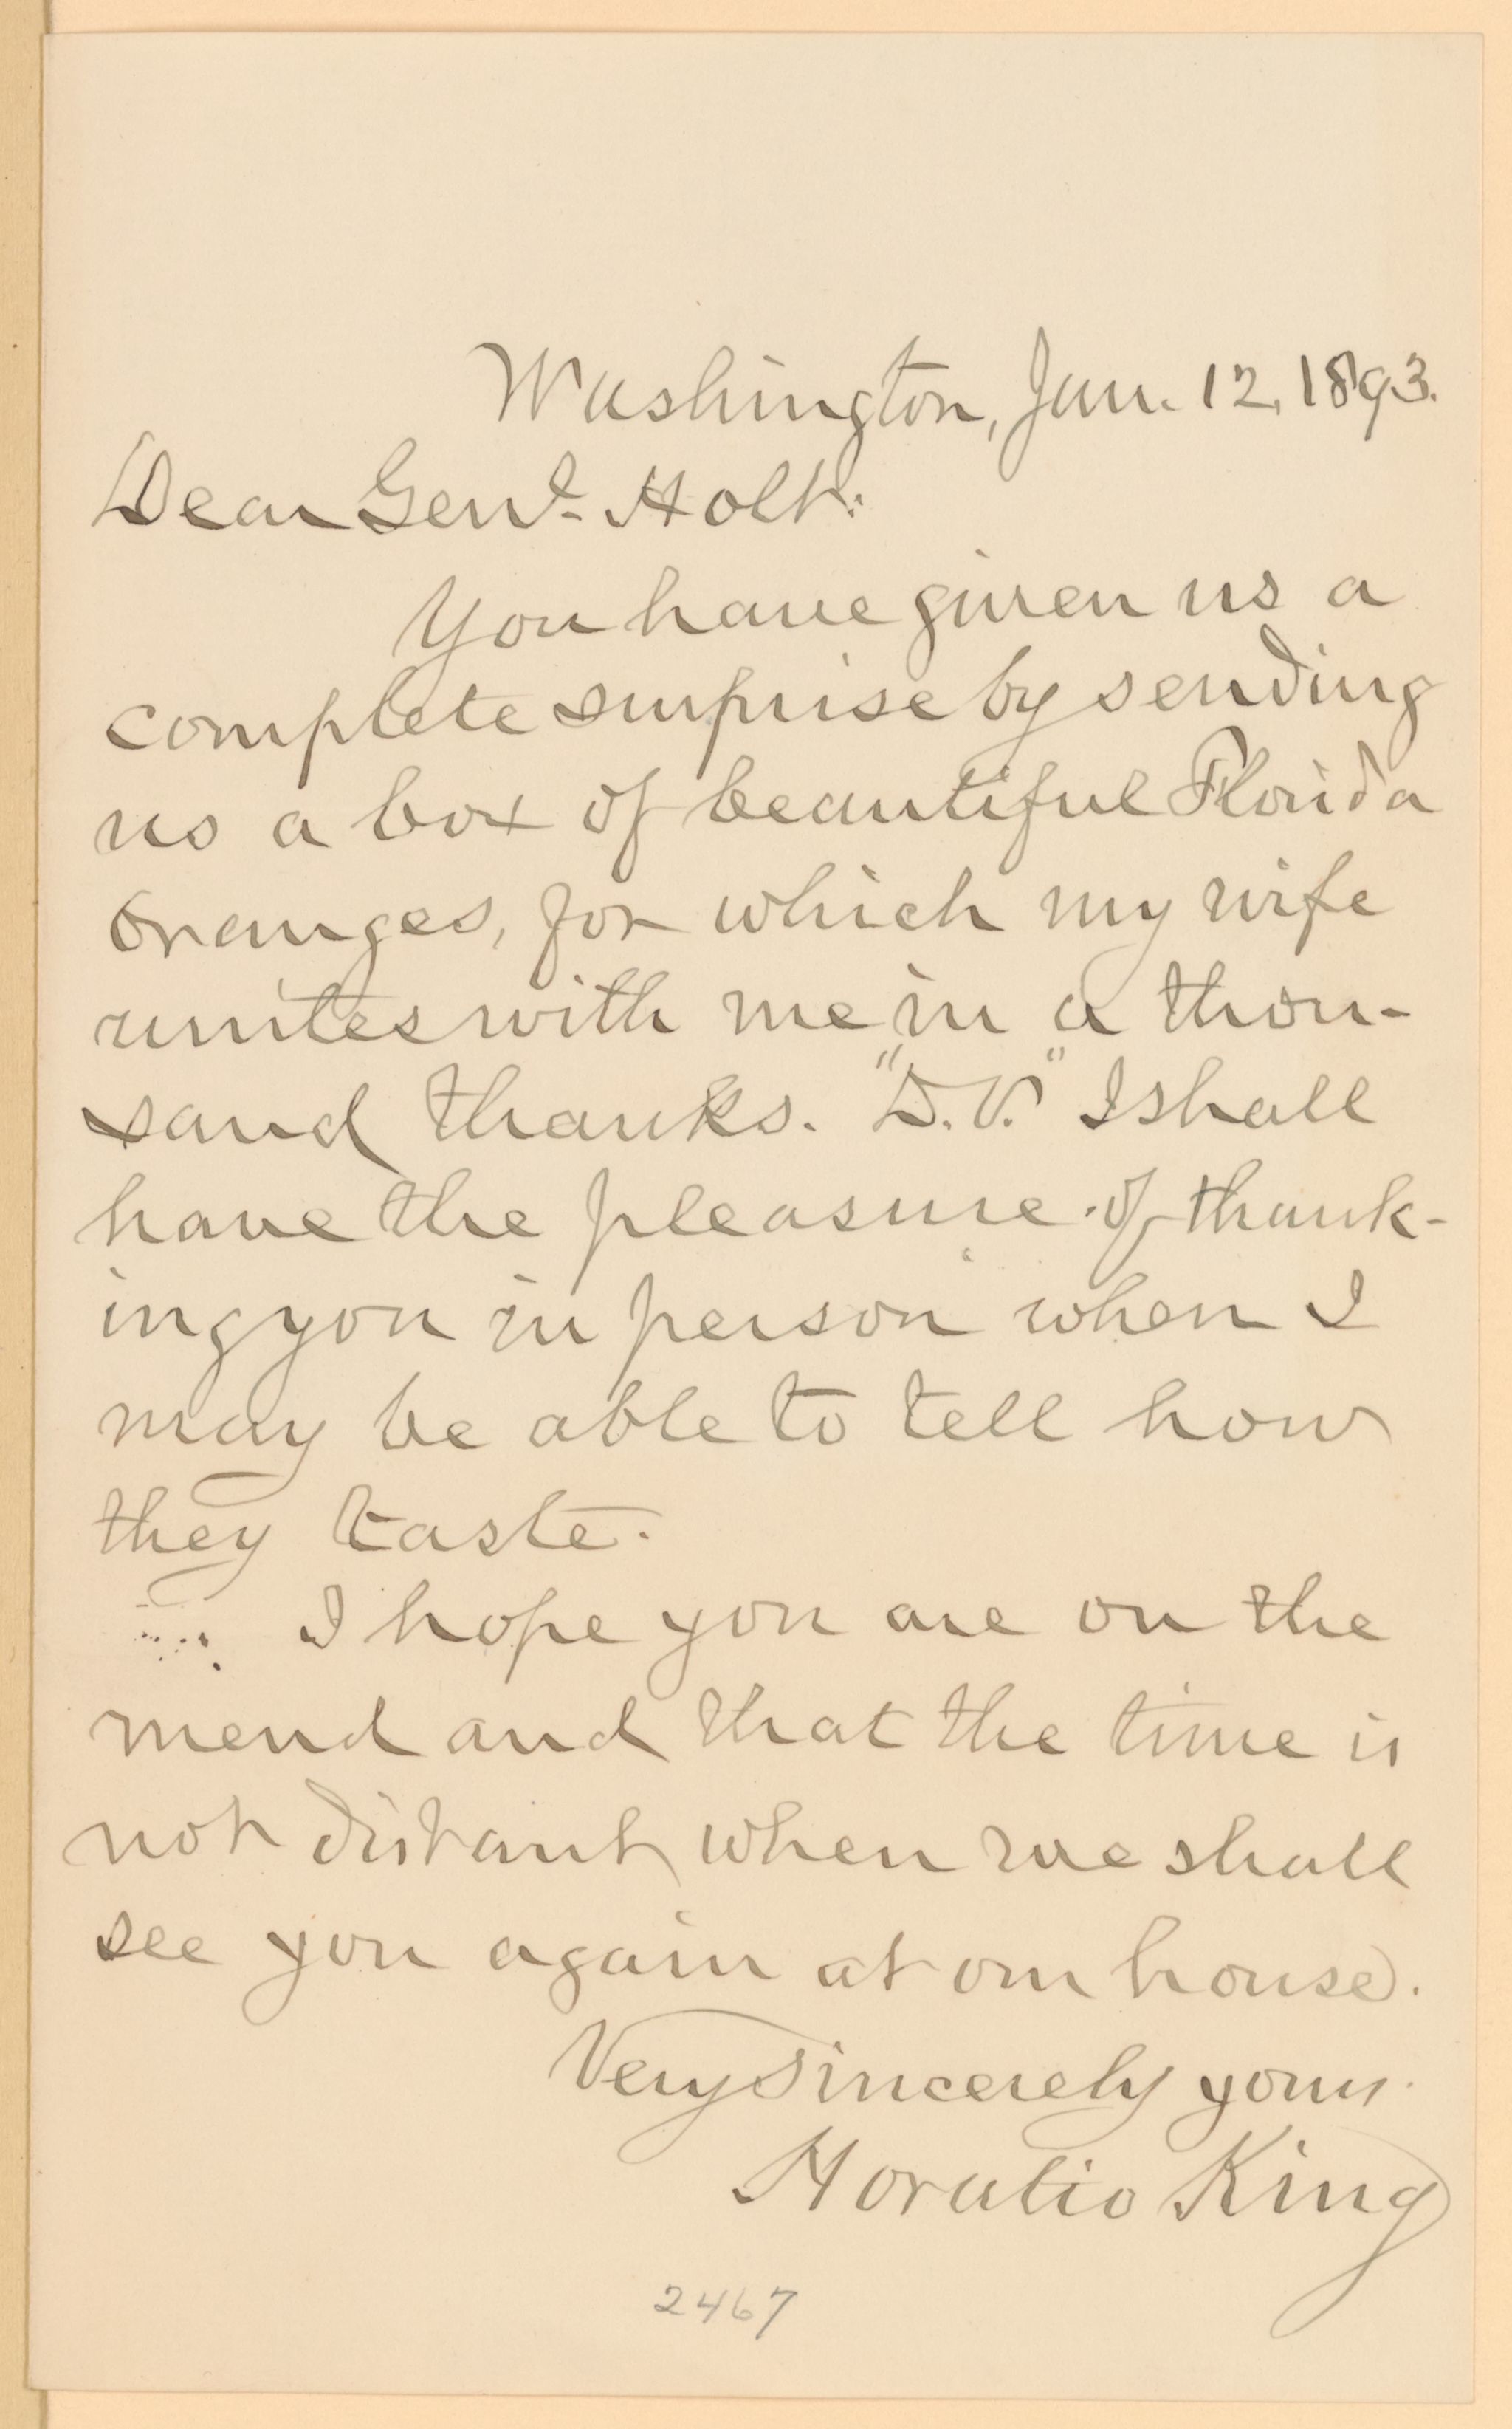 Washington, Jan. 12, 1893.
Dear Genl. Holt:
You have given us a
complete surprise by sending
us a box of beautiful Florida
oranges, for which my wife
unites with me in a thou-
sand thanks. "D.V." I shall
have the pleasure of thank-
ing you in person when I
may be able to tell how
they taste.
I hope you are on the
mend and that the time is
not distant when we shall
see you again at our house.
Very sincerely yours
Horatio King
2467